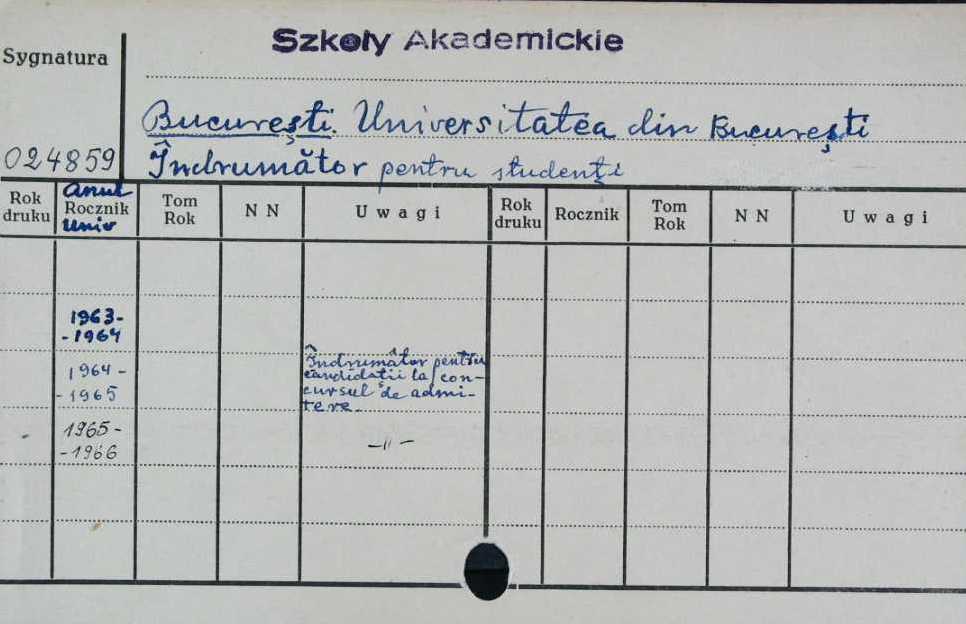 Szkoły Akademickie
Sygnatura
București. Universitatea din București
024859
Îndrumător pentru studenți
Rok druku
anul
Rocznik
Univ
Tom Rok
N N
Uwagi
Rok druku
Rocznik
Tom Rok
N N
Uwagi
1963-
-1964
1964-
-1965
Îndrumător pentru
candidații la con-
cursul de admi-
tere.
1965-
-1966
-"-